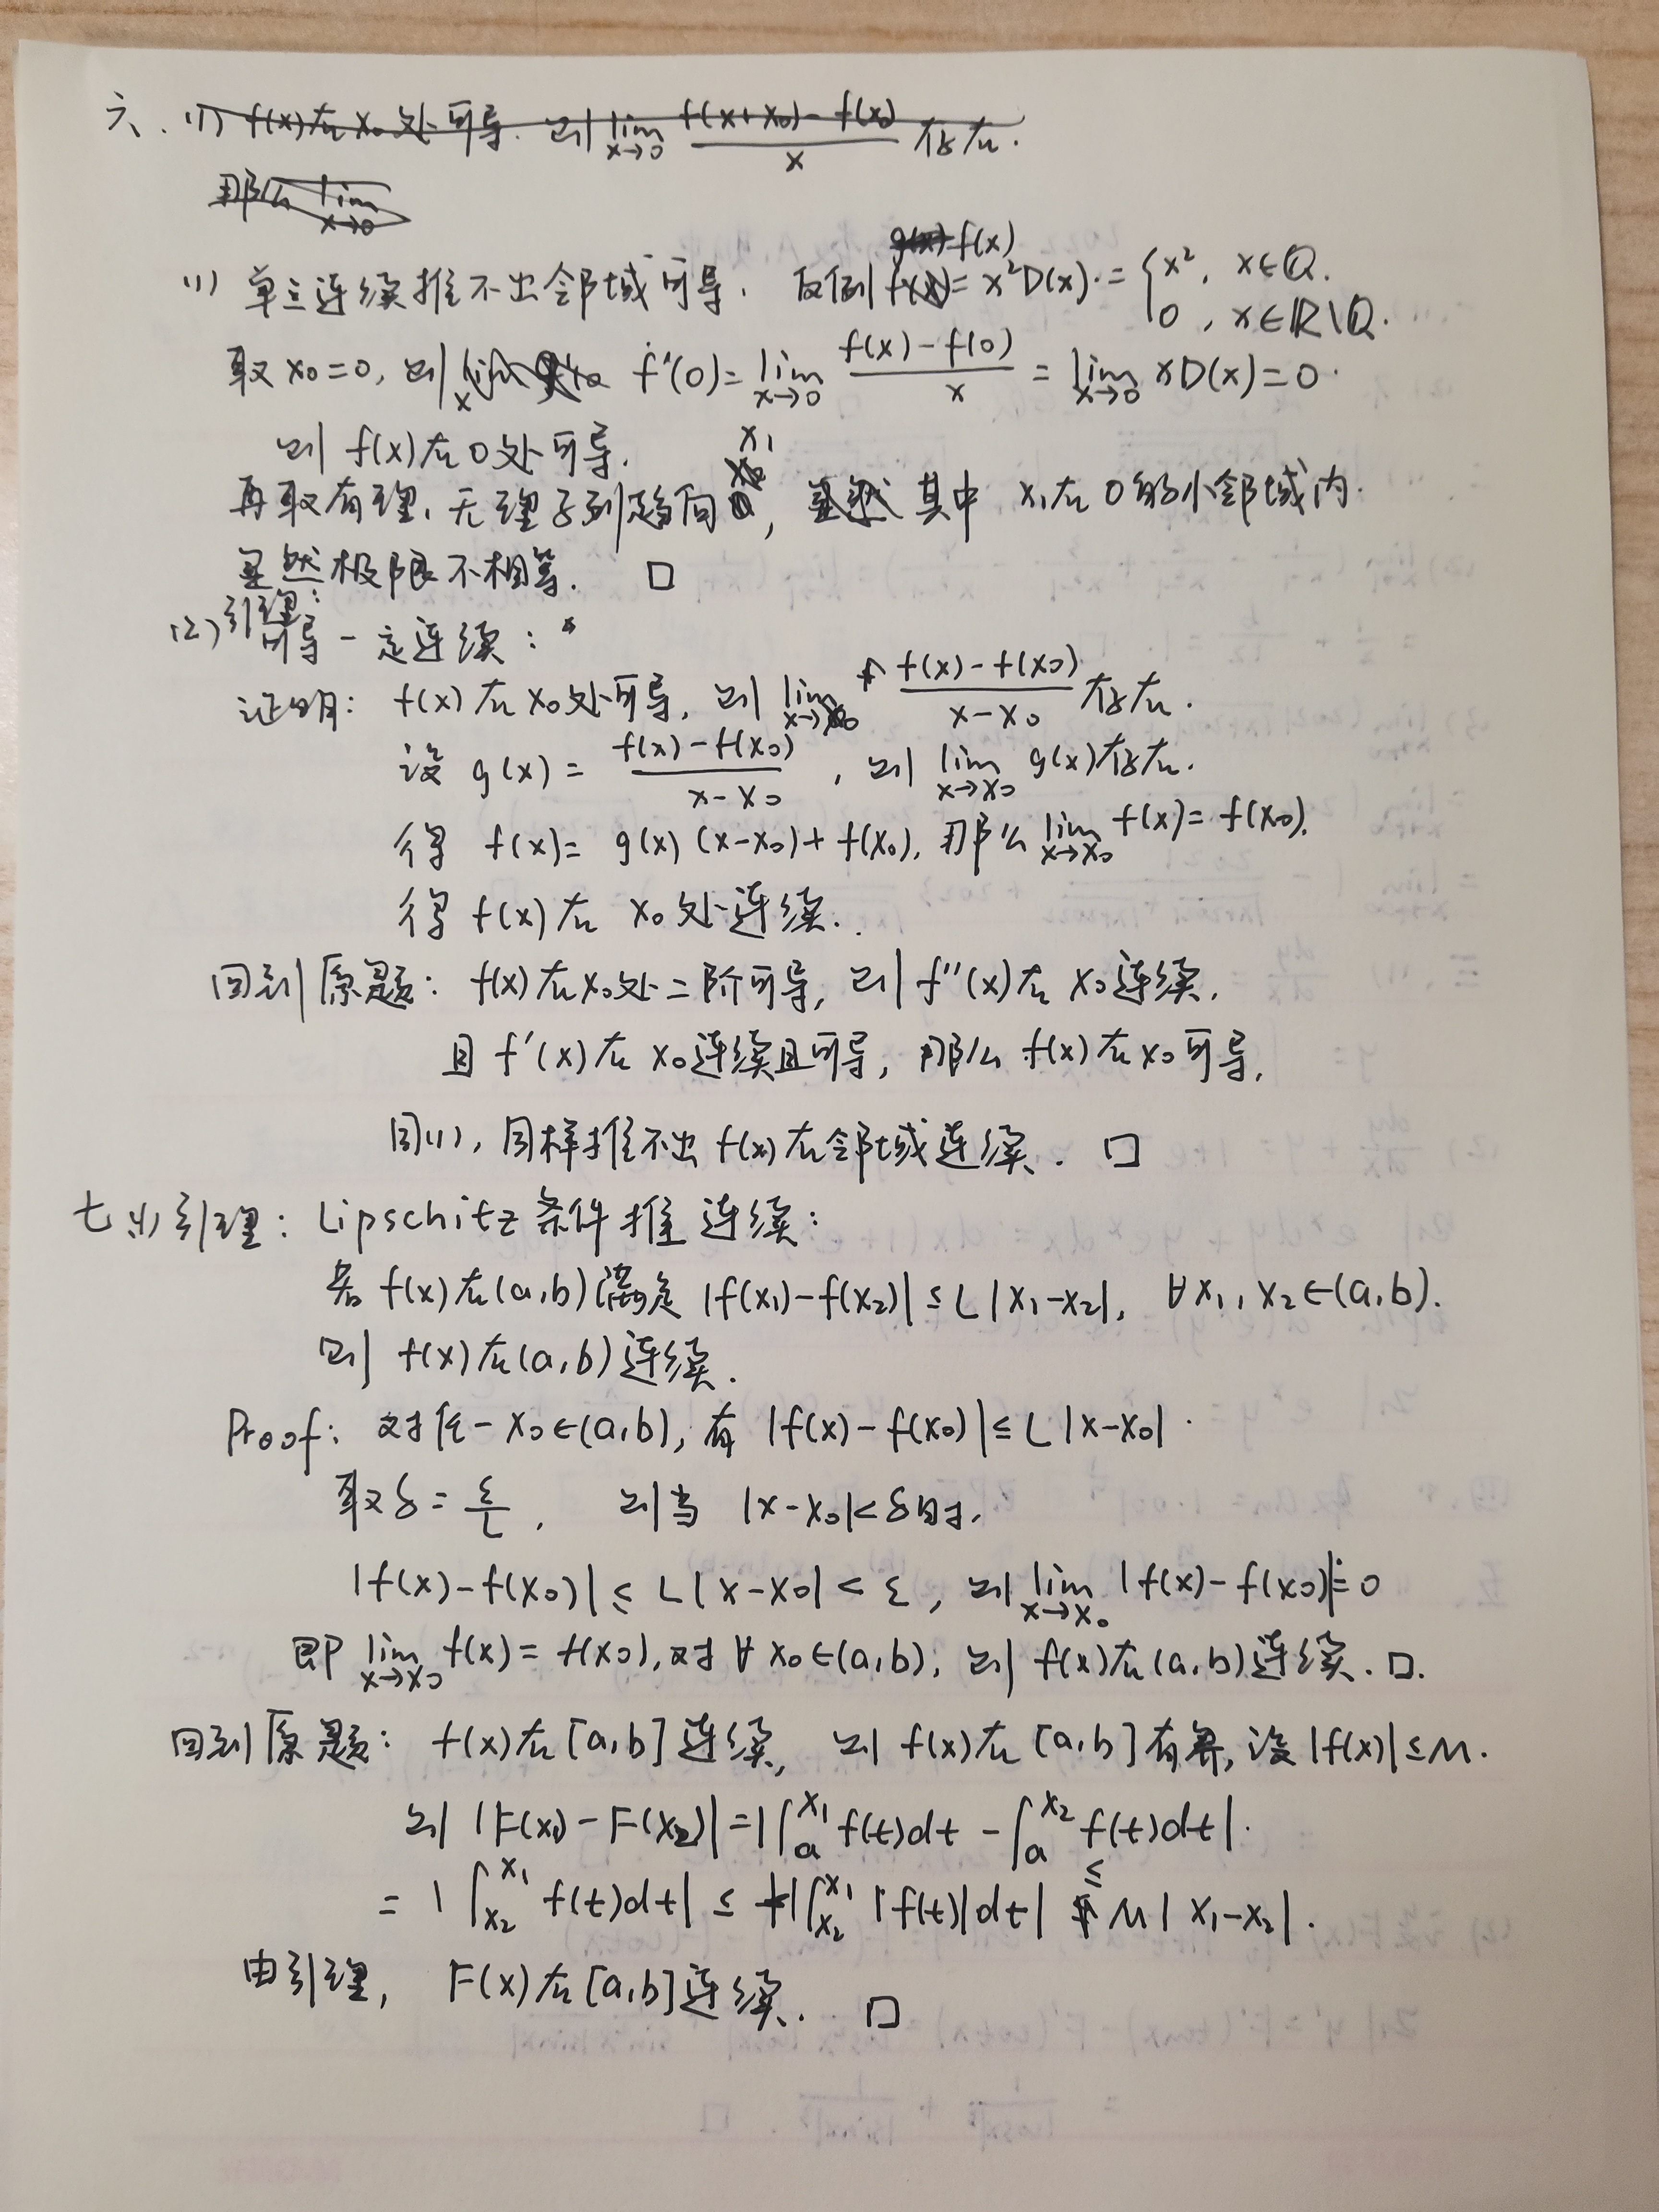 六、(1) f(x)在x₀处可导. 则 lim_{x→0} (f(x+x₀)-f(x₀))/x 存在.
那么 lim_{x→0}
(1) 单点连续推不出邻域可导. 反例 f(x) = x²D(x) = { x², x∈Q. 0, x∈R\Q.
取 x₀=0, 则 f'(0) = lim_{x→0} (f(x)-f(0))/x = lim_{x→0} xD(x) = 0.
则 f(x)在0处可导.
再取有理、无理子列趋向 x₁, 其中 x₁在0的小邻域内.
显然极限不相等. □
(2) 引理: 可导一定连续:
证明: f(x)在x₀处可导, 则 lim_{x→x₀} (f(x)-f(x₀))/(x-x₀) 存在.
设 g(x) = (f(x)-f(x₀))/(x-x₀), 则 lim_{x→x₀} g(x)存在.
得 f(x) = g(x)(x-x₀)+f(x₀), 那么 lim_{x→x₀} f(x) = f(x₀).
得 f(x)在 x₀处连续.
回到原题: f(x)在x₀处二阶可导, 则 f''(x)在 x₀连续.
且 f'(x)在 x₀连续且可导, 那么 f(x)在x₀可导,
同(1), 同样推不出 f(x)在邻域连续. □
七、(1) 引理: Lipschitz条件推连续:
若 f(x)在(a,b)满足 |f(x₁)-f(x₂)| ≤ L|x₁-x₂|, ∀x₁, x₂∈(a,b).
则 f(x)在(a,b)连续.
Proof: 对任一 x₀∈(a,b), 有 |f(x)-f(x₀)| ≤ L|x-x₀|.
取δ = ε/L, 则当 |x-x₀|<δ时,
|f(x)-f(x₀)| ≤ L|x-x₀| < ε, 则 lim_{x→x₀} |f(x)-f(x₀)| = 0
即 lim_{x→x₀} f(x) = f(x₀), 对∀x₀∈(a,b), 则 f(x)在(a,b)连续. □.
回到原题: f(x)在[a,b]连续, 则 f(x)在[a,b]有界, 设|f(x)|≤M.
则 |F(x₁)-F(x₂)| = |∫_a^{x₁} f(t)dt - ∫_a^{x₂} f(t)dt|.
= |∫_{x₂}^{x₁} f(t)dt| ≤ |∫_{x₂}^{x₁} |f(t)|dt| ≤ M|x₁-x₂|.
由引理, F(x)在[a,b]连续. □